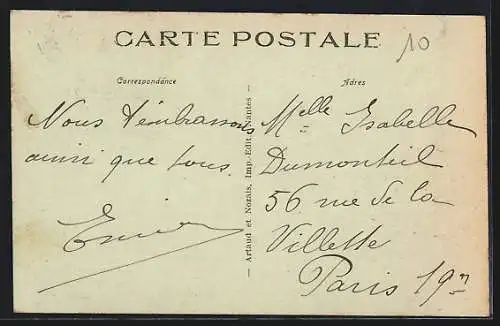 CARTE POSTALE
10
Correspondance
Adres
Nous t'embrassons
ainsi que tous.
Melle Isabelle
Dumonteil
56 rue de la
Villette
Paris 19e
— Artaud et Nozais, Imp.-Edit., Nantes —